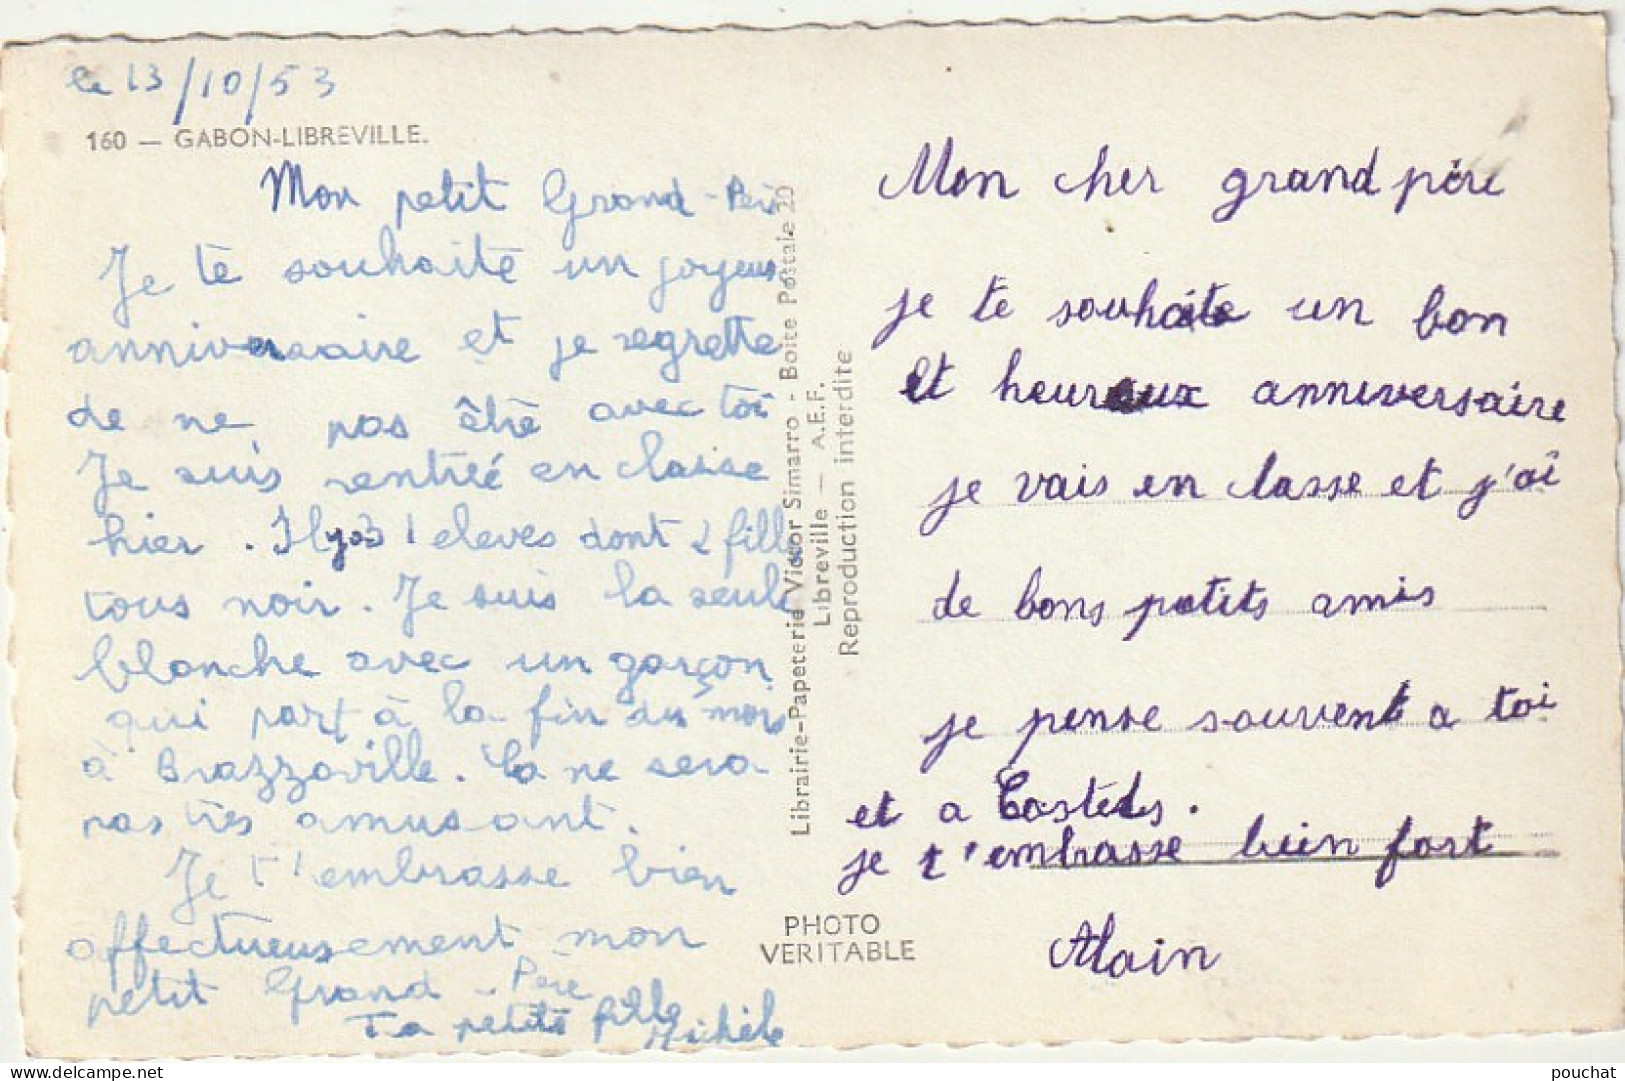 le 13/10/53
160 — GABON-LIBREVILLE.
Mon petit Grand-Père
Je te souhaite un joyeux
anniversaire et je regrette
de ne pas être avec toi
Je suis rentrée en classe
hier. Il y a 31 eleves dont 2 filles
tous noir. Je suis la seule
blanche avec un garçon
qui part à la fin du mois
à Brazzaville. Ca ne sera
pas très amusant.
Je t'embrasse bien
affectueusement mon
petit Grand-Père
Ta petite fille
Michèle
Librairie-Papeterie Victor Simarro - Boite Postale 20
Libreville — A.E.F.
Reproduction interdite
PHOTO
VERITABLE
Mon cher grand père
je te souhaite un bon
et heureux anniversaire
je vais en classe et j'ai
de bons petits amis
je pense souvent a toi
et a
je t'embrasse bien fort
Alain
pouchat